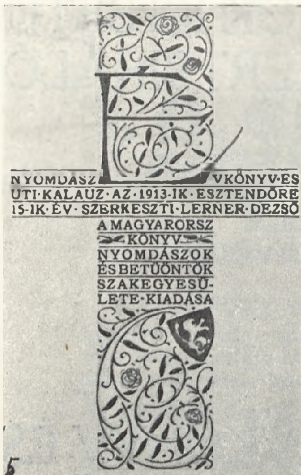 NYOMDASZ ÉVKÖNYV·ES
UTI·KALAUZ·AZ·1913-IK·ESZTENDŐRE
15-IK·ÉV·SZERKESZTI·LERNER·DEZSŐ
A MAGYARORSZ
KÖNYV
NYOMDÁSZOK
ÉS BETŰÖNTŐK
SZAKEGYESÜ-
LETE·KIADÁSA
5